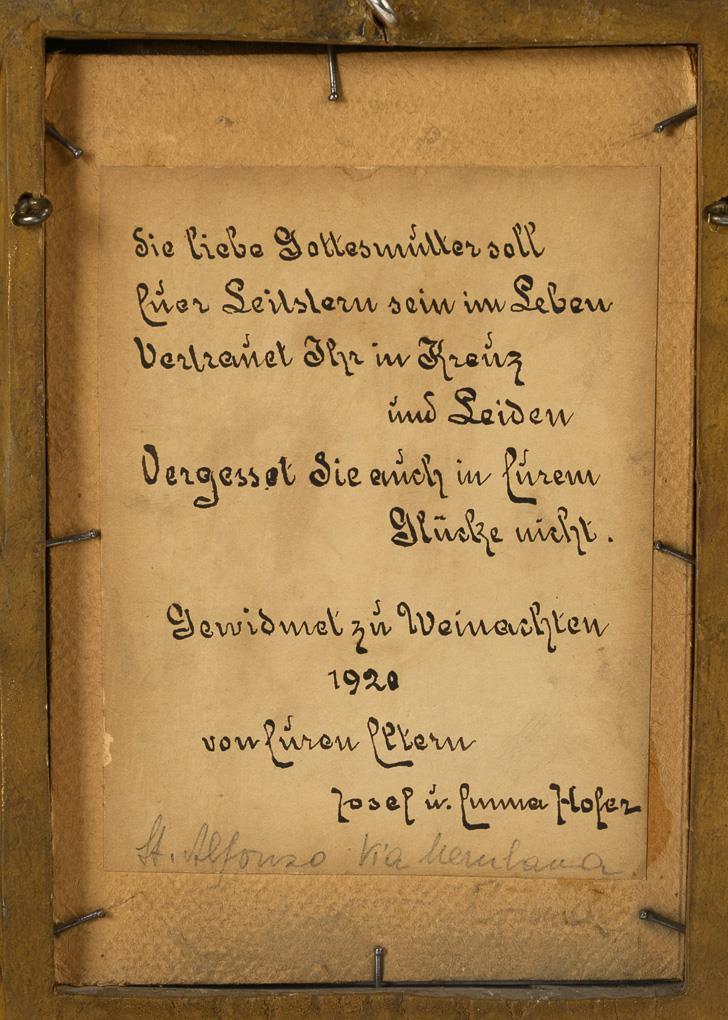 Die liebe Gottesmutter soll
Euer Leitstern sein im Leben
Vertrauet Ihr in Kreuz
und Leiden
Vergesset Sie auch in Eurem
Glücke nicht.
Gewidmet zu Weinachten
1920
von Euren Eltern
Josef u. Emma Hofer
St. Alfonzo Via Merulana